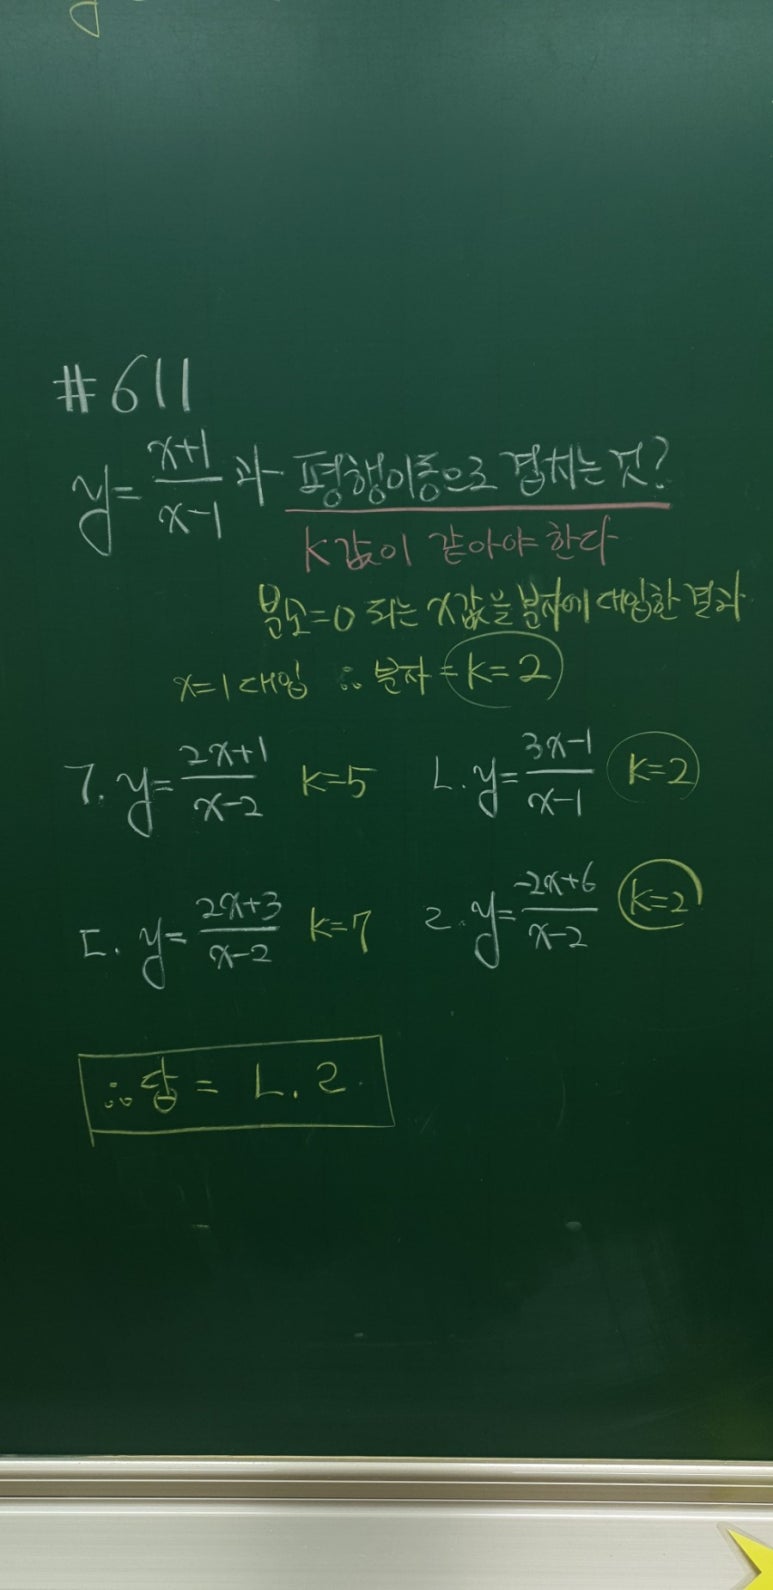 #611
y=\frac{x+1}{x-1} 과 평행이동으로 겹치는 것?
k값이 같아야 한다
분모=0 되는 x값을 분자에 대입한 결과
x=1 대입 ∴ 분자 = k=2
ㄱ. y=\frac{2x+1}{x-2} k=5 ㄴ. y=\frac{3x-1}{x-1} k=2
ㄷ. y=\frac{2x+3}{x-2} k=7 ㄹ. y=\frac{-2x+6}{x-2} k=2
∴ 답 = ㄴ. ㄹ.